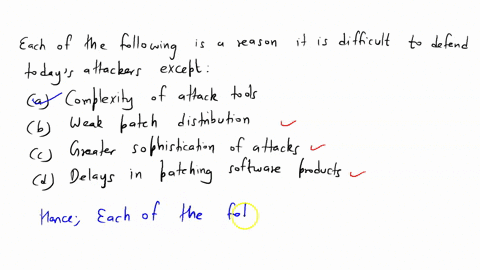 Each of the following is a reason it is difficult to defend
today's attackers except:
(a) Complexity of attack tools
(b) Weak patch distribution
(c) Greater sophistication of attacks
(d) Delays in patching software products
Hence; Each of the fol